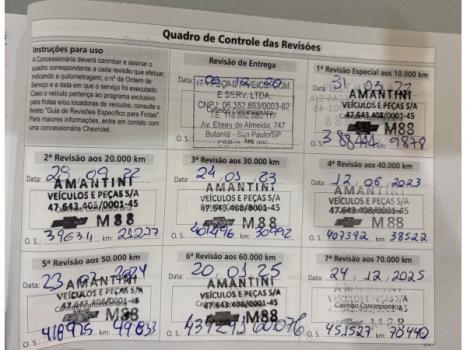 Quadro de Controle das Revisões
Instruções para uso
A Concessionária deverá carimbar e assinar o
quadro correspondente a cada revisão que efetuar,
indicando a quilometragem, o nº da Ordem de
Serviço e a data em que o serviço foi executado.
Caso o veículo pertença ao programa exclusivo
para frotas e/ou locadoras de veículos, consulte o
livreto "Guia de Revisões Específico para Frotas".
Para maiores informações, entre em contato com
uma concessionária Chevrolet.
Revisão de Entrega
Data:
E SERV. LTDA.
CNPJ: 06.352.893/0003-82
Butantã - São Paulo/SP
1ª Revisão Especial aos 10.000 km
AMANTINI
VEÍCULOS E PEÇAS S/A
47.643.408/0001-45
M88
9878
2ª Revisão aos 20.000 km
Data: 29 09 22
AMANTINI
VEÍCULOS E PEÇAS S/A
47.643.408/0001-45
M88
O. S.: km:
3ª Revisão aos 30.000 km
Data: 24 01 23
AMANTINI
VEÍCULOS E PEÇAS S/A
47.643.408/0001-45
M88
O. S.: 401496 km: 30992
4ª Revisão aos 40.000 km
Data: 12 06 2023
AMANTINI
VEÍCULOS E PEÇAS S/A
47.643.408/0001-45
M88
O. S.: 407392 km: 38522
5ª Revisão aos 50.000 km
AMANTINI
VEÍCULOS E PEÇAS S/A
47.643.408/0001-45
M88
418975 49833
6ª Revisão aos 60.000 km
Data: 20 01 25
AMANTINI
VEÍCULOS E PEÇAS S/A
47.643.408/0001-45
M88
O. S.: 60076
7ª Revisão aos 70.000 km
Data: 24 12 2025
AMANTINI
VEÍCULOS E PEÇAS S/A
47.643.408/0001-45
Carimbo Concessionária
M88
O. S.: 451527 km: 70440